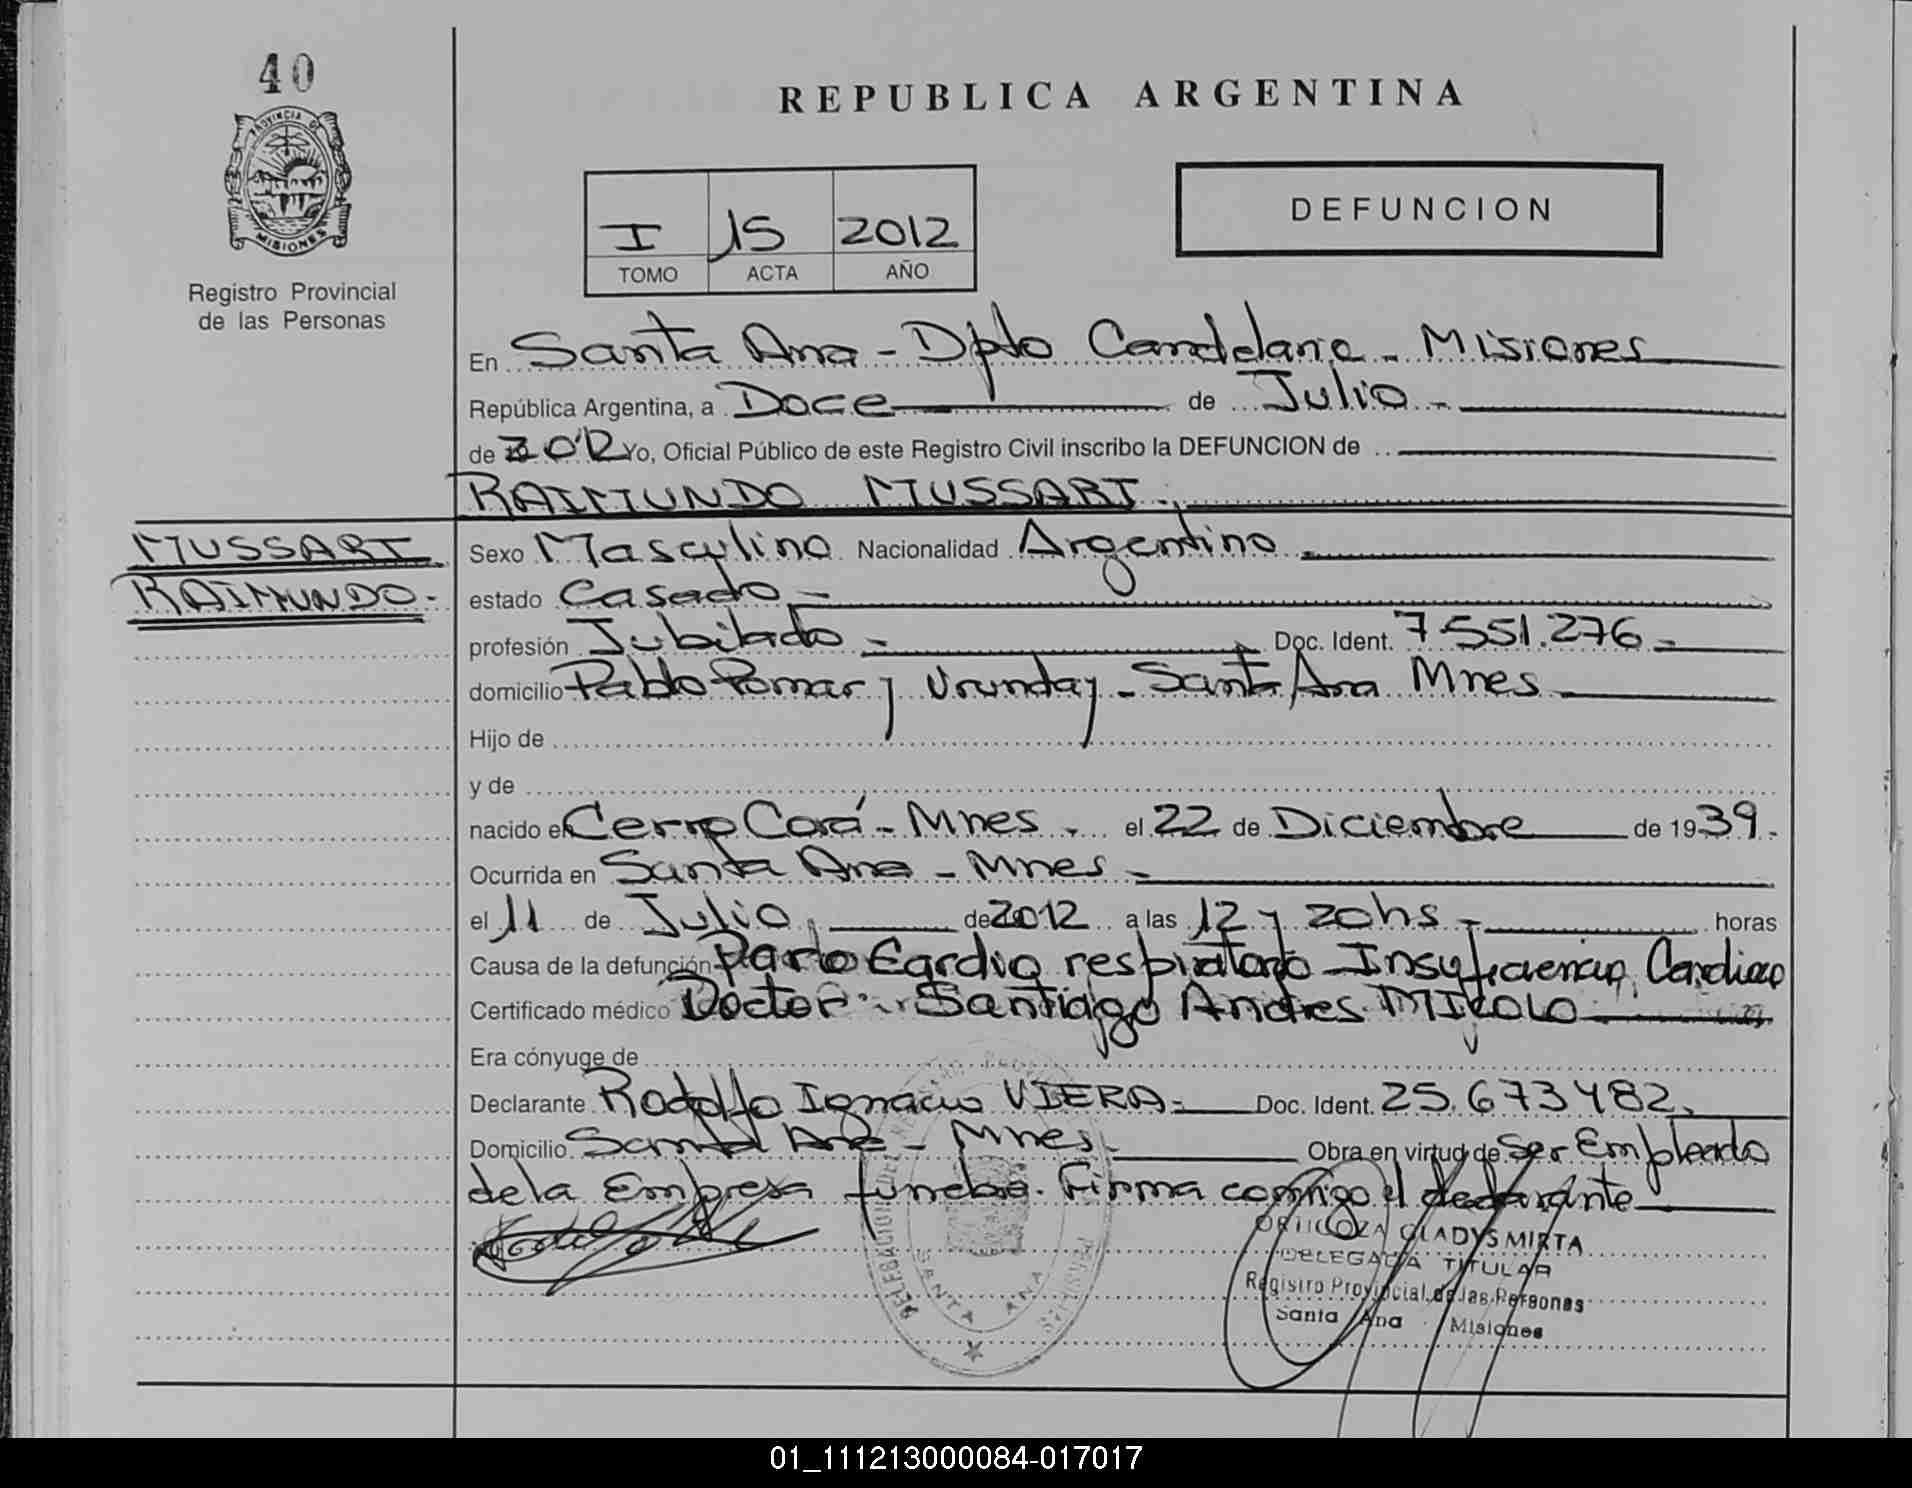 40
PROVINCIA DE
MISIONES
Registro Provincial
de las Personas
REPUBLICA ARGENTINA
I 15 2012
TOMO ACTA AÑO
DEFUNCION
En Santa Ana - Dpto Candelaria - Misiones
República Argentina, a Doce de Julio -
de 2012 Yo, Oficial Público de este Registro Civil inscribo la DEFUNCION de
RAIMUNDO MUSSART.
MUSSART
RAIMUNDO.
Sexo Masculino Nacionalidad Argentino
estado Casado -
profesión Jubilado - Doc. Ident. 7.551.276 -
domicilio Pablo Pomar y Urunday - Santa Ana Mnes
Hijo de
y de
nacido en Cerro Corá - Mnes - el 22 de Diciembre de 1939.
Ocurrida en Santa Ana - Mnes -
el 11 de Julio, de 2012 a las 12 y 20 hs - horas
Causa de la defunción Paro Cardio respiratorio - Insuficiencia Cardiaca
Certificado médico Doctor: Santiago Andres
Era cónyuge de
Declarante Rodolfo Ignacio VIERA - Doc. Ident. 25.673482.
Domicilio Santa Ana - Mnes - Obra en virtud de ser Empleado
de la Empresa funebre. Firma conmigo el declarante
DELEGACION DEL REGISTRO PROVINCIAL
PERSONAS
SANTA ANA
GLADYS MIRTA
DELEGADA TITULAR
Registro Provincial de las Personas
Santa Ana Misiones
01_111213000084-017017